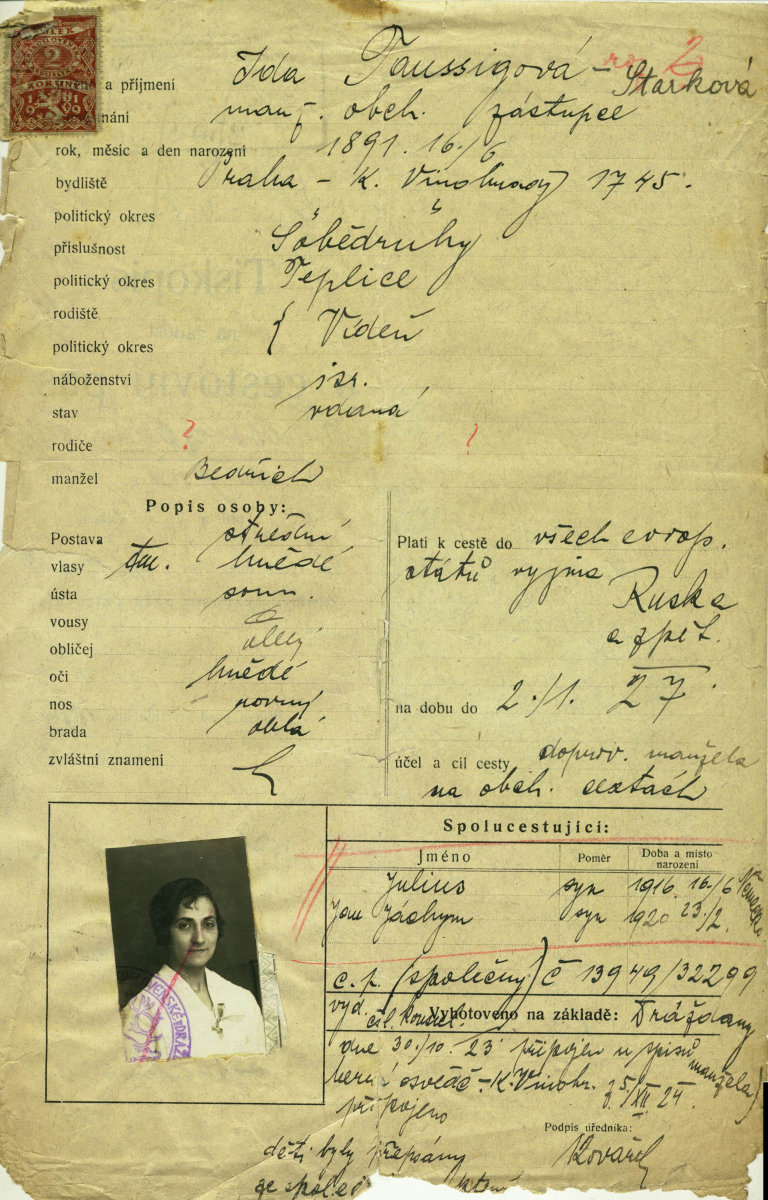 KOLEK
2
KORUNY
1919
no 2
a příjmení Ida Taussigová – Starková
nání manž. obch. zástupce
rok, měsíc a den narození 1891. 16./6
bydliště Praha – K. Vinohrady 1745.
politický okres
příslušnost Sobědruhy
politický okres Teplice
rodiště
{ Vídeň
politický okres
náboženství izr.
stav vdaná
rodiče ? ?
manžel Bedřich
Popis osoby:
Postava střední
vlasy tm. hnědé
ústa soum.
vousy
obličej ollý
oči hnědé
nos rovný
brada oblá
zvláštní znamení
Platí k cestě do všech evrop.
států vyjma
Ruska
a zpět.
na dobu do 2./1. 27.
účel a cíl cesty doprov. manžela
na obch. cestách
Spolucestující:
Jméno Poměr Doba a místo
narození
Julius syn 1916 16./6
Jan Jáchym syn 1920 23./2.
Německa
c. p. (společný) č 13949/32299
vyd. čsl. konsul. Drážďany
Vyhotoveno na základě:
dne 30./10. 23 připojen u spisů
manžela)
berní osvědč. – K. Vinohr. 5/XII. 24.
připojeno
Podpis úředníka:
Kovařík
děti byly přepsány
ze společ